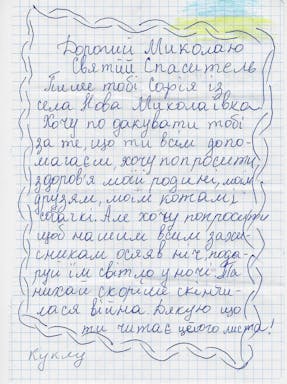 Дорогий Миколаю
Святий Спаситель
Пише тобі Софія із
села Нова Миколаївка.
Хочу по дякувати тобі
за те, що ти всім допо-
магаєш, хочу попросити
здоров'я моїй родині, моїм
друзям, моїм котам і
собачки. Але хочу попросити
щоб нашим всім захи-
сникам осяяв ніч, пода-
руй їм світло у ночі. Та
нихай скоріше скінчи-
лася війна. Дякую що
ти читаєш цього листа!
Куклу